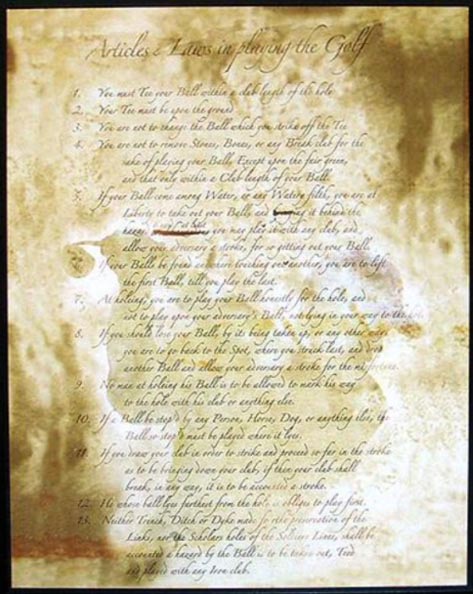 Articles & Laws in playing the Golf
1. You must Tee your Ball within a club length of the hole
2. Your Tee must be upon the ground
3. You are not to change the Ball which you strike off the Tee
4. You are not to remove Stones, Bones, or any Break club for the
sake of playing your Ball, Except upon the fair green,
and that only within a Club length of your Ball.
5. If your Ball come among Water, or any Watery filth, you are at
Liberty to take out your Ball, and it behind the
you may play it with any club, and
allow your adversary a stroke, for so getting out your Ball.
If your Balls be found anywhere touching one another, you are to lift
the first Ball, till you play the last.
7. At holeing, you are to play your Ball honestly for the hole, and
not to play upon your adversary's Ball, not lying in your way to the hole.
8. If you should lose your Ball, by its being taken up, or any other way,
you are to go back to the Spot, where you struck last, and drop
another Ball and allow your adversary a stroke for the misfortune.
9. No man at holeing his Ball is to be allowed to mark his way
to the hole with his club or anything else.
10. If a Ball be stop'd by any Person, Horse, Dog, or anything else, the
Ball so stop'd must be played where it lyes.
11. If you draw your club in order to strike and proceed so far in the stroke
as to be bringing down your club, if then your club shall
break, in any way, it is to be accounted a stroke.
12. He whose ball lyes farthest from the hole is obliged to play first.
13. Neither Trench, Ditch or Dyke made for the preservation of the
Links, nor the Scholars holes or the Soldiers Lines, shall be
accounted a hazard by the Ball is to be taken out, Teed
and played with any Iron club.